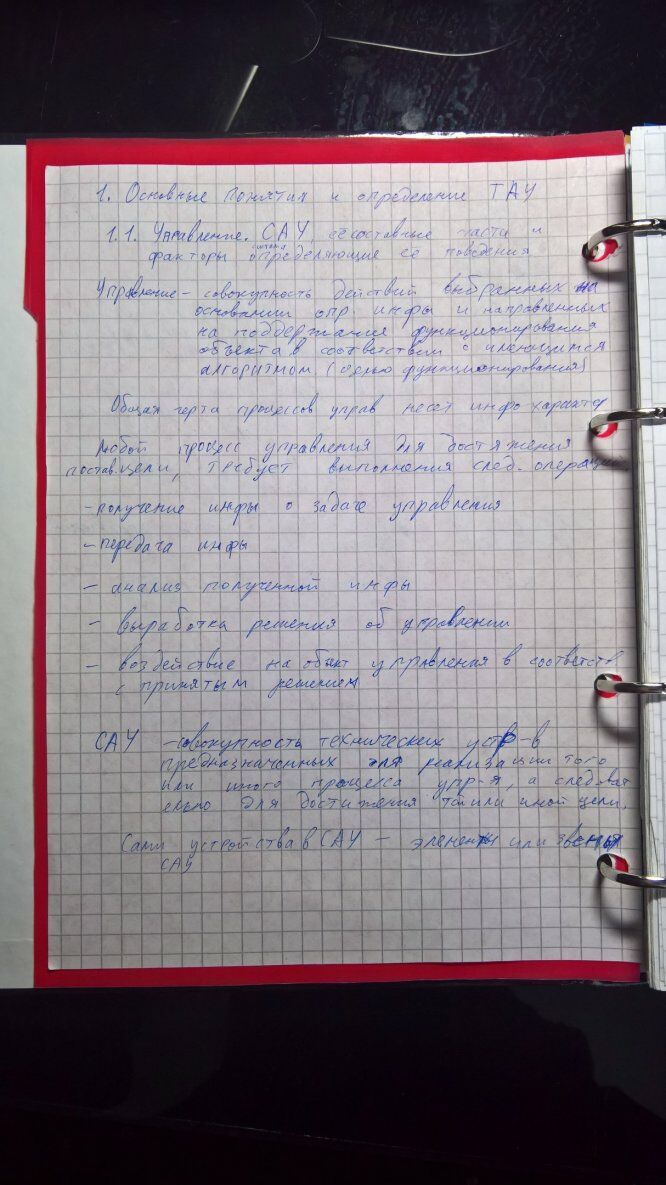 1. Основные понятия и определение ТАУ
1.1. Управление. САУ, её составные части и
факторы определяющие её поведения
Управление - совокупность действий выбранных на
основании опр. инфы и направленных
на поддержания функционирования
объекта в соответствии с имеющимся
алгоритмом (целью функционирования)
Общая черта процессов управ несёт инфо характер
Любой процесс управления для достяжения
постав. цели, требует выполнения след. операций
- получение инфы о задаче управления
- передача инфы
- анализ полученной инфы
- выработка решения об управлении
- воздействие на объкт управления в соответств
с принятым решением
САУ - совокупность технических устр-в
предназначенных для реализации того
или иного процесса упр-я, а следоват
ельно для достижения той или иной цели.
Сами устройства в САУ - элементы или звенья
САУ